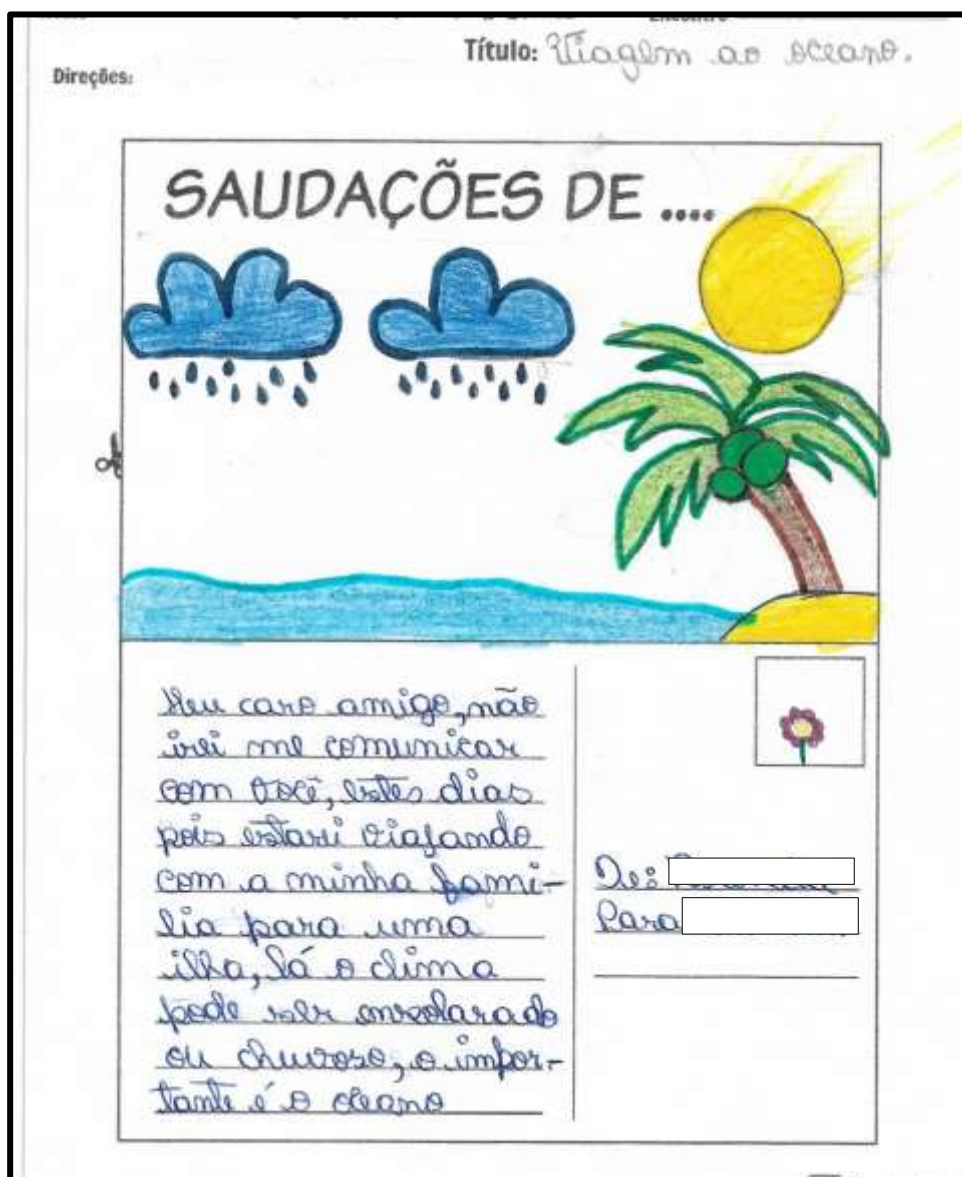 Encontro
Título: Viagem ao oceano.
Direções:
SAUDAÇÕES DE ....
Meu caro amigo, não
irei me comunicar
com você, estes dias
pois estarei viajando
com a minha famí-
lia para uma
ilha, lá o clima
pode ser ensolarado
ou chuvoso, o impor-
tante é o oceano
De:
Para